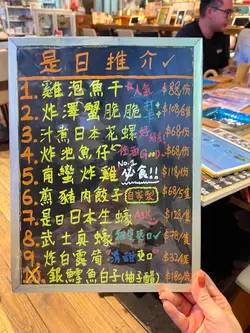 是日推介✓
1. 雞泡魚干 人氣 $88/份
2. 炸澤蟹脆脆 $108/6隻
3. 汁煮日本花螺 $68/份
4. 炸池魚仔 Good $68/份
5. 南蠻炸雞 No.1 必食!! $118/份
6. 煎豬肉餃子 自家製 $68/5隻
7. 是日日本生蠔 $128/隻
8. 武士真蠔 $78/隻
9. 炸白露筍 清甜 $32/隻
10. 銀鱈魚白子(柚子醋) $180/份